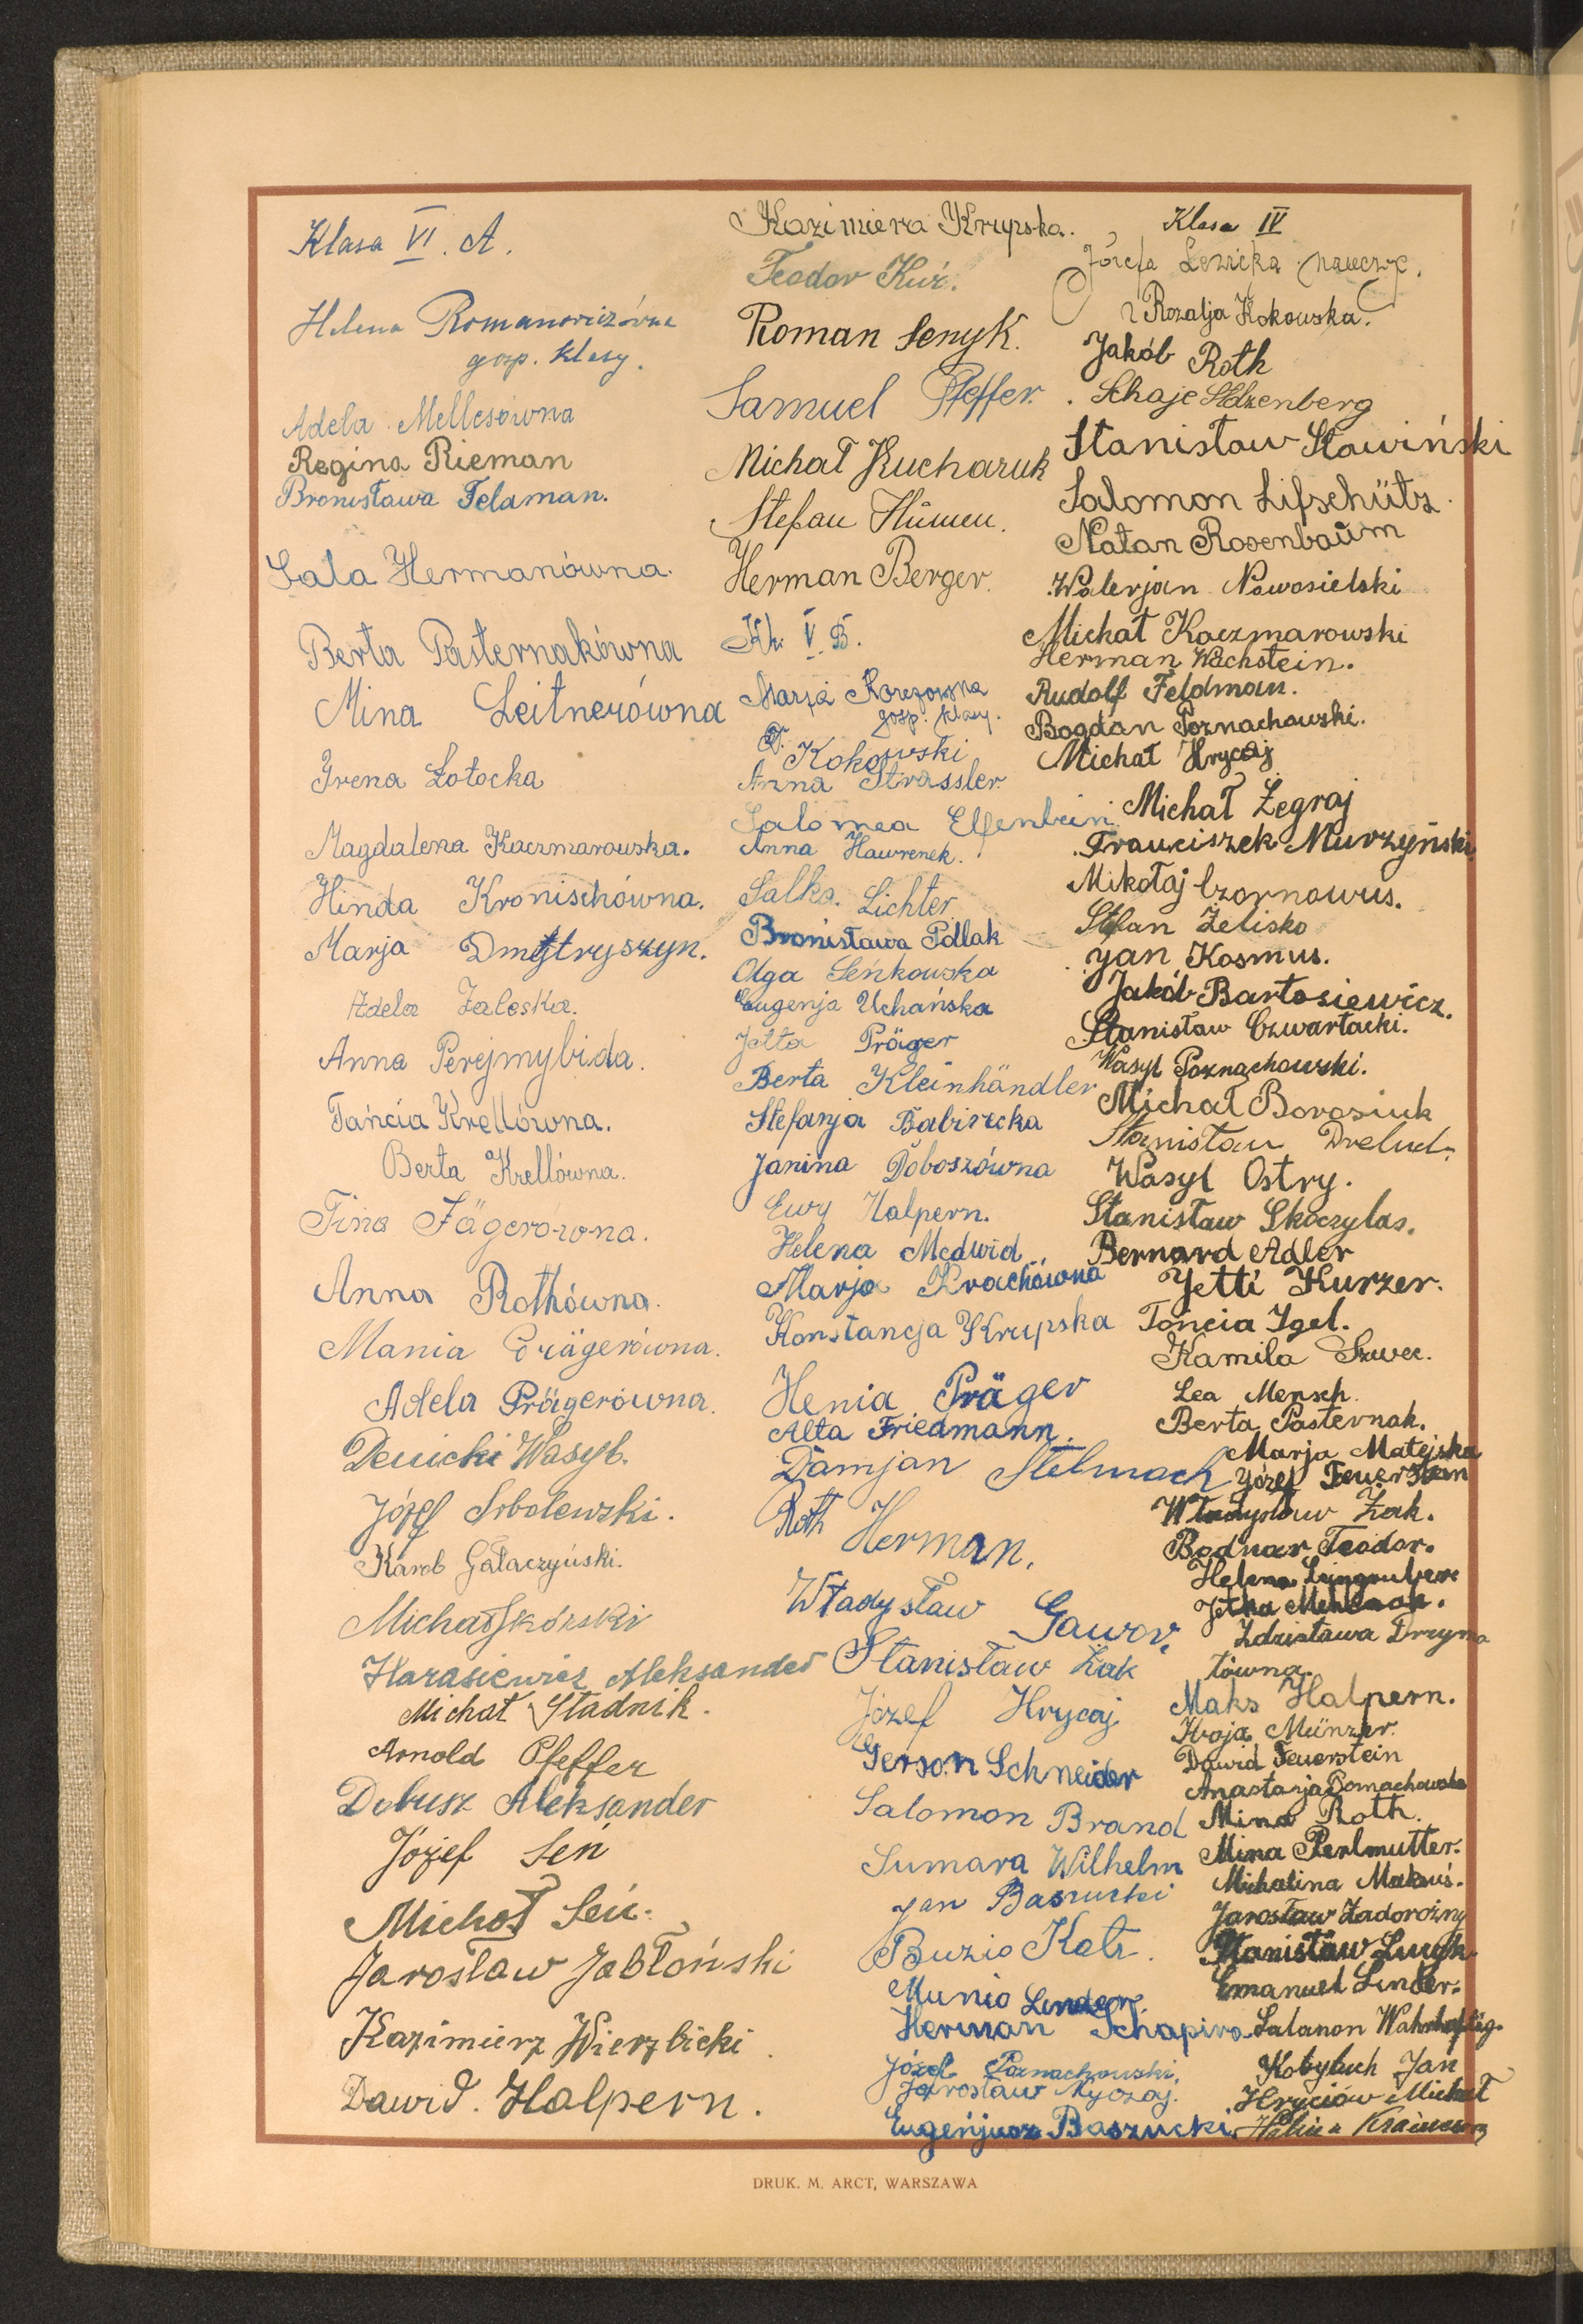 Klasa VI. A.
Helena Romanowiczówna
gosp. klasy.
Adela Mellesówna
Regina Rieman
Bronisława Felaman.
Sala Hermanówna.
Berta Pasternakówna
Mina Leitnerówna
Irena Łotocka
Magdalena Kaczmarowska.
Hinda Kronischówna.
Marja Dmytryszyn.
Adela Zaleska.
Anna Perejmybida.
Tańcia Krellówna.
Berta Krellówna.
Tina Jägerówna.
Anna Rothówna.
Mania Prägerówna.
Adela Prägerówna.
Denicki Wasyl.
Józef Sobolewski.
Karol Gałaczyński.
Michał Skórski
Harasiewicz Aleksander
Michał Stadnik.
Arnold Pfeffer
Dobusz Aleksander
Józef Seń
Michał Seń.
Jarosław Jabłoński
Kazimierz Wierzbicki
Dawid. Halpern.
Kazimiera Krupska.
Teodor Kuć.
Roman Senyk.
Samuel Pfeffer.
Michał Kucharuk
Stefan
Herman Berger.
Kl. V. B.
Marja
gosp. klasy.
Kokowski
Anna Strassler.
Salomea Elfenbein.
Anna Hawrenek.
Salka. Lichter
Bronisława Pollak
Olga Seńkowska
Eugenja Uchańska
Jetta Präger
Berta Kleinhändler
Stefanja Babirecka
Janina Doboszówna
Ewy Halpern.
Helena Medwid.
Marja Krachówna
Konstancja Krupska
Henia Präger
Alta Friedmann.
Damjan Stelmach
Roth Herman.
Władysław Gawor.
Stanisław Żak
Józef Hrycaj
Gerson Schneider
Salomon Brand
Sumara Wilhelm
Jan Baszucki
Buzio Katz.
Munio Lender.
Herman Schapiro
Józef Poznachowski.
Jarosław Nyczaj.
Eugenjusz Baszucki.
Klasa IV
Józefa Leznicka naucz.
Rozalja Kokowska.
Jakób Roth
Schaje
Stanisław Sławiński
Salomon Lifschütz.
Natan Rosenbaum
Walerjan Nowosielski
Michał Kaczmarowski
Herman Wachstein.
Rudolf Feldman.
Bogdan Poznachowski.
Michał Hrycaj
Michał Żegraj
Franciszek Murzyński
Mikołaj Czornowus.
Stefan Żelisko
Jan Kosmus.
Jakób Bartosiewicz.
Stanisław Czwartacki.
Wasyl Poznachowski.
Michał Borosiuk
Stanisław Drelud.
Wasyl Ostry.
Stanisław Skoczylas.
Bernard Adler
Jetti Kurzer.
Tońcia Igel.
Kamila Szwec.
Lea Mensch.
Berta Pasternak.
Marja Matejska
Józef Feuerstein
Władysław Żak.
Bodnar Teodor.
Helena
Jetka
Zdzisława Drzyma
łówna.
Maks Halpern.
Münzer.
Dawid Feuerstein
Anastazja Poznachowska
Mina Roth.
Mina Perlmutter.
Michalina Makuś.
Jarosław Zadorożny
Stanisław
Emanuel Lender.
Salamon
Kobyluch Jan
Hryciów Michał